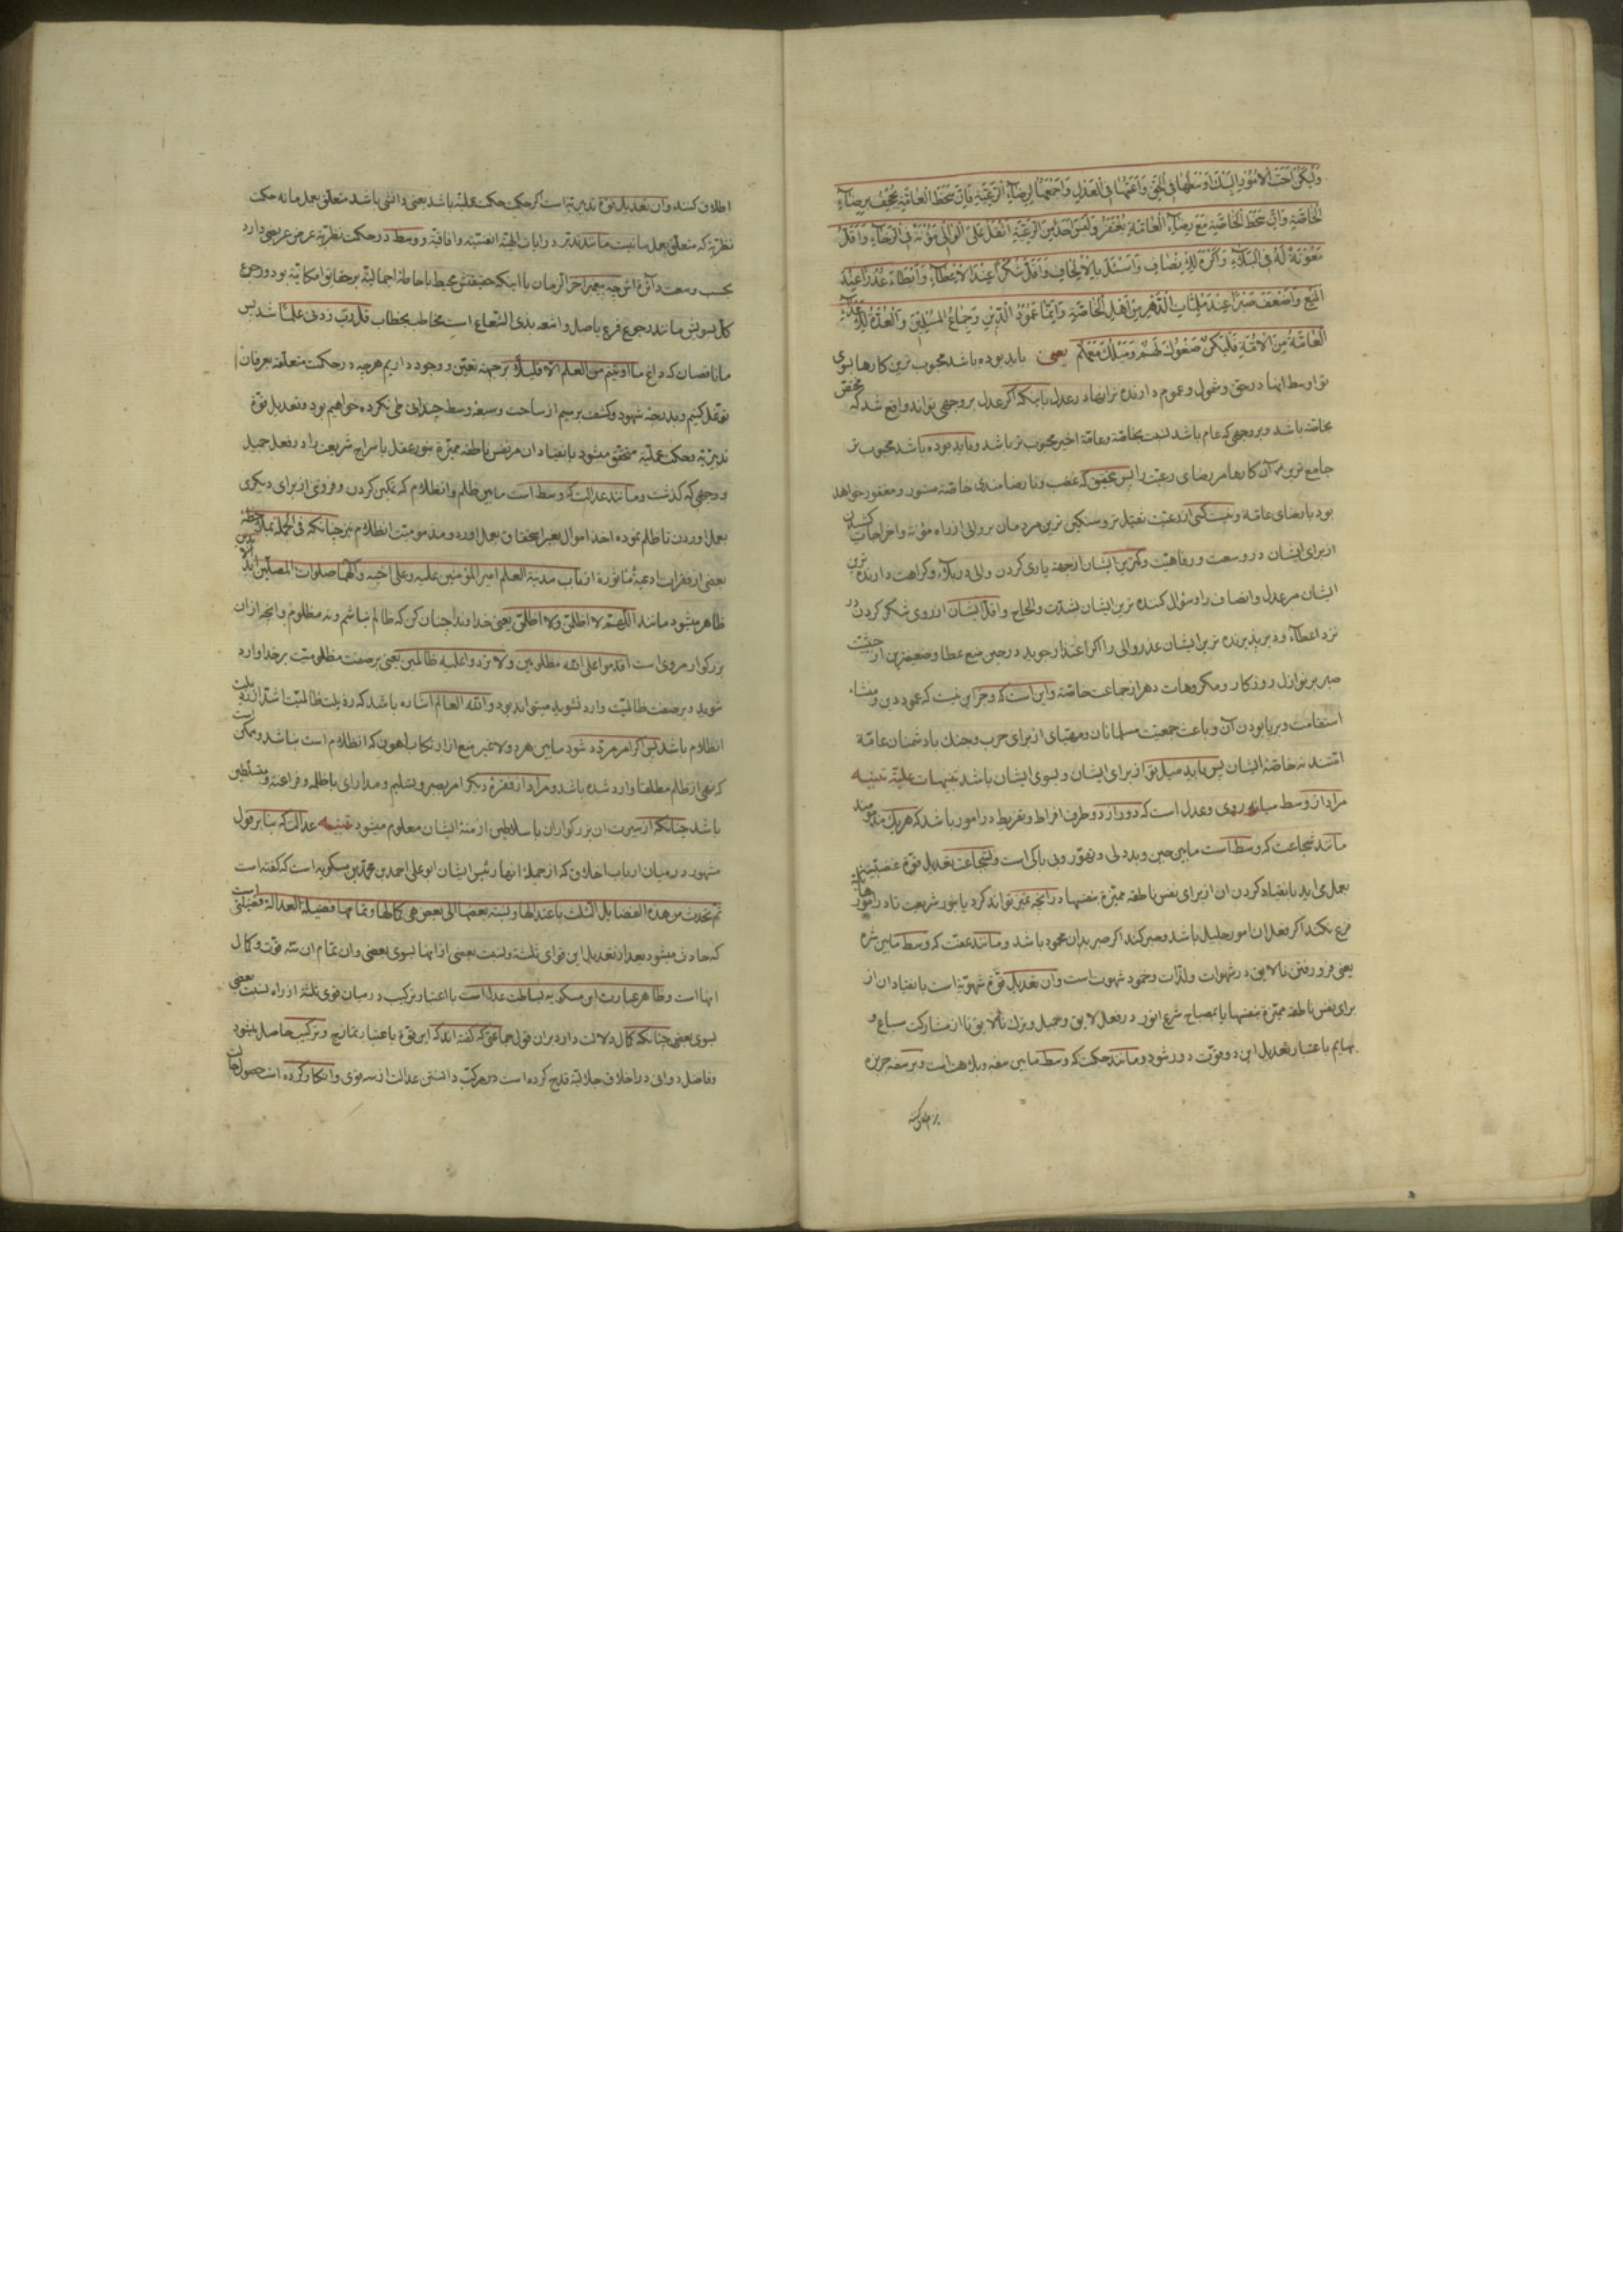 وَلْيَكُنْ اَحَبَّ الْاُمُورِ اِلَيْكَ اَوْسَطُهَا فِي الْحَقِّ وَاَعَمُّهَا فِي الْعَدْلِ وَاَجْمَعُهَا لِرِضَآءِ الرَّعِيَّةِ فَاِنَّ سَخَطَ الْعَامَّةِ يُجْحِفُ بِرِضَآءِ
الْخَاصَّةِ وَاِنَّ سَخَطَ الْخَاصَّةِ مَعَ رِضَآءِ الْعَامَّةِ يُغْتَفَرُ وَلَيْسَ اَحَدٌ مِنَ الرَّعِيَّةِ اَثْقَلَ عَلَى الْوَالِي مَؤُنَةً فِي الرَّخَآءِ وَاَقَلَّ
مَعُونَةً لَهُ فِي الْبَلَآءِ وَاَكْرَهَ لِلْاِنْصَافِ وَاَسْئَلَ بِالْاِلْحَافِ وَاَقَلَّ شُكْرًا عِنْدَ الْاِعْطَآءِ وَاَبْطَاءَ عُذْرًا عِنْدَ
الْمَنْعِ وَاَضْعَفَ صَبْرًا عِنْدَ مُلِمَّاتِ الدَّهْرِ مِنْ اَهْلِ الْخَاصَّةِ وَاِنَّمَا عَمُودُ الدِّينِ وَجِمَاعُ الْمُسْلِمِينَ وَالْعُدَّةُ لِلْاَعْدَآءِ
الْعَامَّةُ مِنَ الْاُمَّةِ فَلْيَكُنْ صَغْوُكَ لَهُمْ وَمَيْلُكَ مَعَهُمْ يعنى بايد بوده باشد محبوب ترين كارها بسوى
تو اوسط انها در حق وشمول وعموم دارنده تر انها در عدل باينكه اكر عدل بر وجهى تواند واقع شد كه مختص
بخاصّه باشد وبر وجهى كه عام باشد نسبت بخاصّه وعامّه اخير محبوب تر باشد وبايد بوده باشد محبوب تر
جامع ترين آن كارها مر رضاى رعيّت را پس بتحقيق كه غضب ونا رضامندى خاصّه مستور ومغفور خواهد
بود با رضاى عامّه ونيست كسى از رعيّت ثقيل تر وسنكين ترين مردمان بر والى از راه مؤنه واخراجات كشيدن
از براى ايشان در وسعت ورفاهيّت وكمترين ايشان از جهة يارى كردن والى در بلآء وكراهت دارنده ترين
ايشان مر عدل وانصاف را وسؤال كننده ترين ايشان بشدّت والحاح واقلّ ايشان از روى شكر كردن در
نزد اعطآء ودير پذيرنده ترين ايشان عذر والى را اكر اعتذار جويد در حين منع عطا وضعيفترين از حيثيّت
صبر بر نوازل روزكار ومكروهات دهر از جماعت خاصّه واين است كه وجز اين نيست كه عمود دين ومنشاء
استقامت وبرپا بودن آن وباعث جمعيّت مسلمانان ومهيّاى از براى حرب وجنك با دشمنان عامّه
امّتند نه خاصّهٔ ايشان پس بايد ميل تو از براى ايشان وبسوى ايشان باشد تنبيهات عليّة تنبيه
مراد از وسط ميانه روى وعدل است كه دور از دو طرف افراط وتفريط در امور باشد كه هر يك مذمومند
مانند شجاعت كه وسط است مابين جبن وبد دلى وتهوّر وبى باكى است وشجاعت تعديل قوّة غضبيّه
بعمل ايد بانقياد كردن ان از براى نفس ناطقه مميّزة بنفسها در انچه تميز تواند كرد يا بنور شريعت تا در امور
فزع نكند اكر فعل ان امور جليل باشد وصبر كند اكر صبر بدان محمود باشد ومانند عفّت كه وسط مابين شره
يعنى فرو رفتن نالايق در شهوات ولذّات وخمود شهوت است وان تعديل قوّة شهويّه است بانقياد ان از
براى نفس ناطقه مميّزة بنفسها يا بمصباح شرع انور در فعل لايق وجميل وترك نالايق تا از مشاركت سباع و
بهايم باعتبار تعديل اين دو قوّت دور شود ومانند حكمت كه وسط مابين سفه وبلاهت است وبر سفه جربزه
اطلاق كنند وان تعديل قوّة تدبيريّه است اكر حكمت حكمت عمليّه باشد يعنى دانشى باشد متعلّق بعمل ما نه حكمت
نظريّه كه متعلّق بعمل ما نيست مانند تدبّر در ايات الهيّة انفسيّه وافاقيّه ووسط در حكمت نظريّه عرض عريضى دارد
بحسب وسعت دآئرۀ اش چه پيغمبر اخر الزمان با اينكه حقيقتش محيط باحاطۀ اجماليّه بر حقايق امكانيّه بود ورجوع
كلّ بسويش مانند رجوع فرع باصل واشعه بذى الشّعاع است مخاطب بخطاب قل ربّ زدنى علمًا شد پس
ما ناقصان كه داغ ما اوتيتم من العلم الّا قليلًا بر جبهۀ تعيّن ووجود داريم هرچه در حكمت متعلّقه بعرفان
توغّل كنيم وبدرجۀ شهود وكشف برسيم از ساحت وسيعۀ وسط چندانى طى نكرده خواهيم بود وتعديل قوّة
تدبيريّه وحكمت عمليّه متحقّق ميشود بانقياد ان مر نفس ناطقه مميّزة بنور عقل يا سراج شريعت را در فعل جميل
ووجهى كه كذشت ومانند عدالت كه وسط است مابين ظلم وانظلام كه تمكين كردن وفروتنى از براى ديكرى
بعمل اوردن تا ظلم نموده اخذ اموال بغير استحقاق بعمل اورد ومذموميّت انظلام نيز چنانكه فى الجمله بملاحظه
بعضى از فقرات ادعيۀ مأثورة از باب مدينة العلم امير المؤمنين عليه وعلى اخيه وآلهما صلوات المصلّين ابد
ظاهر ميشود مانند اللّهمّ لا اظلمنّ ولا اظلمنّ يعنى خداوندا چنان كن كه ظالم نباشم ونه مظلوم وانچه از ان
بزركوار مروى است اقدموا على الله مظلومين ولا تردوا عليه ظالمين يعنى بر صفت مظلوميّت بر خدا وارد
شويد وبر صفت ظالميّت وارد نشويد ميتواند بود والله العالم اشاره باشد كه رذيلت ظالميّت اشدّ از رذيلت
انظلام باشد پس اكر امر مردّد شود مابين هر دو لا غير منع از ارتكاب اهون كه انظلام است نباشد وممكن است
كه نهى از ظلم مطلقا وارد شده باشد ومراد از فقرۀ ديكر امر بصبر وتسليم ومداراى با ظلمه وفراعنه ومتسلّطين
باشد چنانكه از سيرت ان بزركواران با سلاطين ازمنۀ ايشان معلوم ميشود تنبيه عدالت كه بنا بر قول
مشهور در ميان ارباب اخلاق كه از جملۀ انها رئيس ايشان ابو على احمد بن محمّد بن مسكويه است كه كفته است
ثم تحدث من هذه الفضايل الثلث باعتدالها ونسبة بعضها الى بعض هى كمالها وتمامها فضيلة العدالة فضيلتى است
كه حادث ميشود بعد از تعديل اين قواى ثلثه ونسبت بعضى از انها بسوى بعضى وان تمام ان سه قوّت وكمال
انها است وظاهر عبارت ابن مسكويه بساطت عدالت است با اعتبار تركيب در ميان قوى ثلثه از راه نسبت بعضى
بسوى بعض چنانكه كمال دلالت دارد بران قول جماعتى كه كفته اند كه اين قوّة باعتبار تمازج وتركيب حاصل ميشود
وفاضل دوانى در اخلاق جلاليّه قدح كرده است در مركّب دانستن عدالت از سه قوى وانكار كرده است حصول